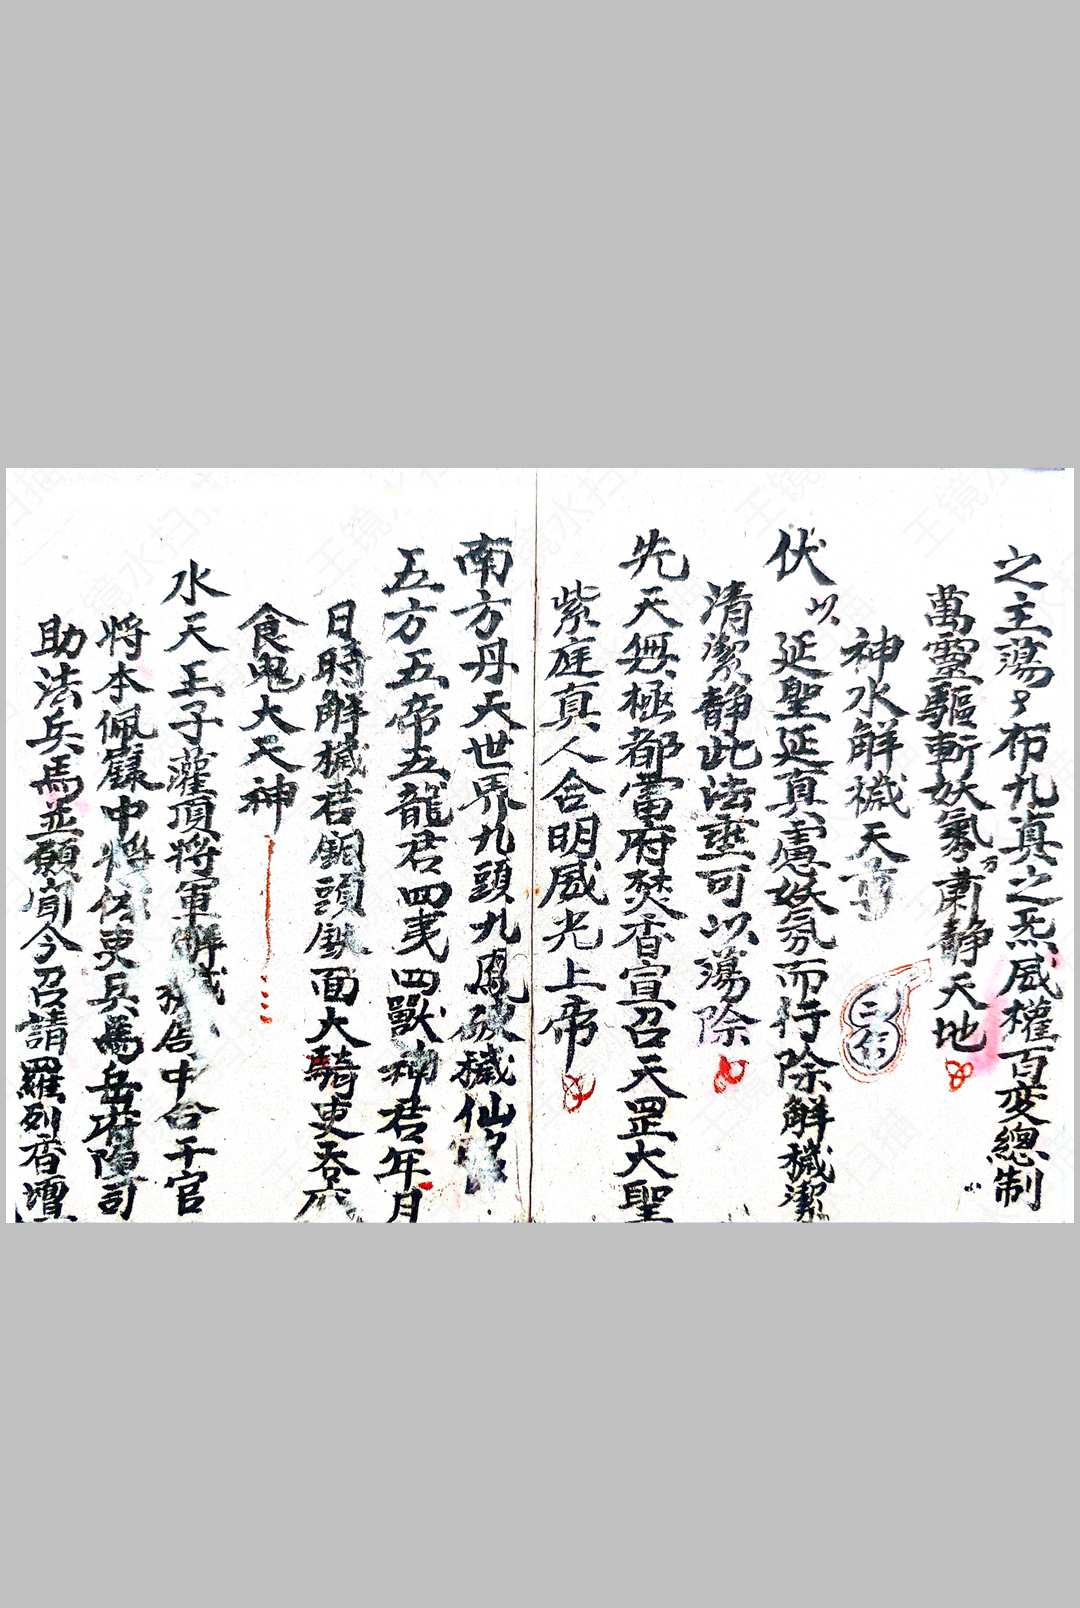 之主蕩〻布九真之炁威權百变總制
萬靈驅斬妖氣肅静天地
神水解穢天尊
伏以延聖延真慮妖氛而行除解穢潔
清潔静此法壇可以蕩除
先天無極都雷府焚香宣召天罡大聖
紫庭真人含明威光上帝
南方丹天世界九頭九鳳破穢仙官
五方五帝五龍君四夷四獸神君年月
日時解穢君銅頭鉄面大騎吏吞
食鬼大天神
水天王子灌頂将軍解穢告中合干官
将本佩籙中将佐吏兵馬岳府司
助法兵馬並願闻今召請羅列香壇